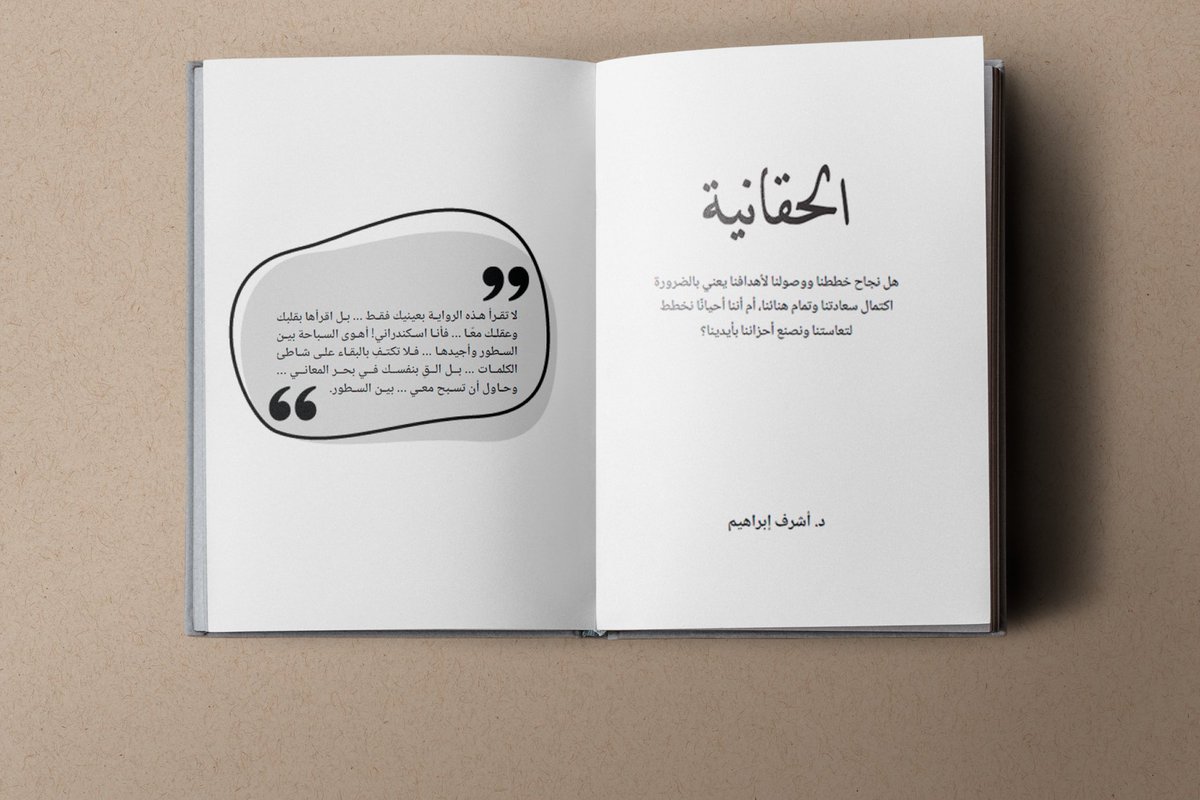 الحقانية
هل نجاح خططنا ووصولنا لأهدافنا يعني بالضرورة
اكتمال سعادتنا وتمام هنائنا، أم أننا أحيانًا نخطط
لتعاستنا ونصنع أحزاننا بأيدينا؟
د. أشرف إبراهيم
”
لا تقرأ هذه الرواية بعينيك فقط ... بل اقرأها بقلبك
وعقلك معًا ... فأنا اسكندراني! أهوى السباحة بين
السطور وأجيدها ... فلا تكتف بالبقاء على شاطئ
الكلمات ... بل الق بنفسك في بحر المعاني ...
وحاول أن تسبح معي ... بين السطور.
“